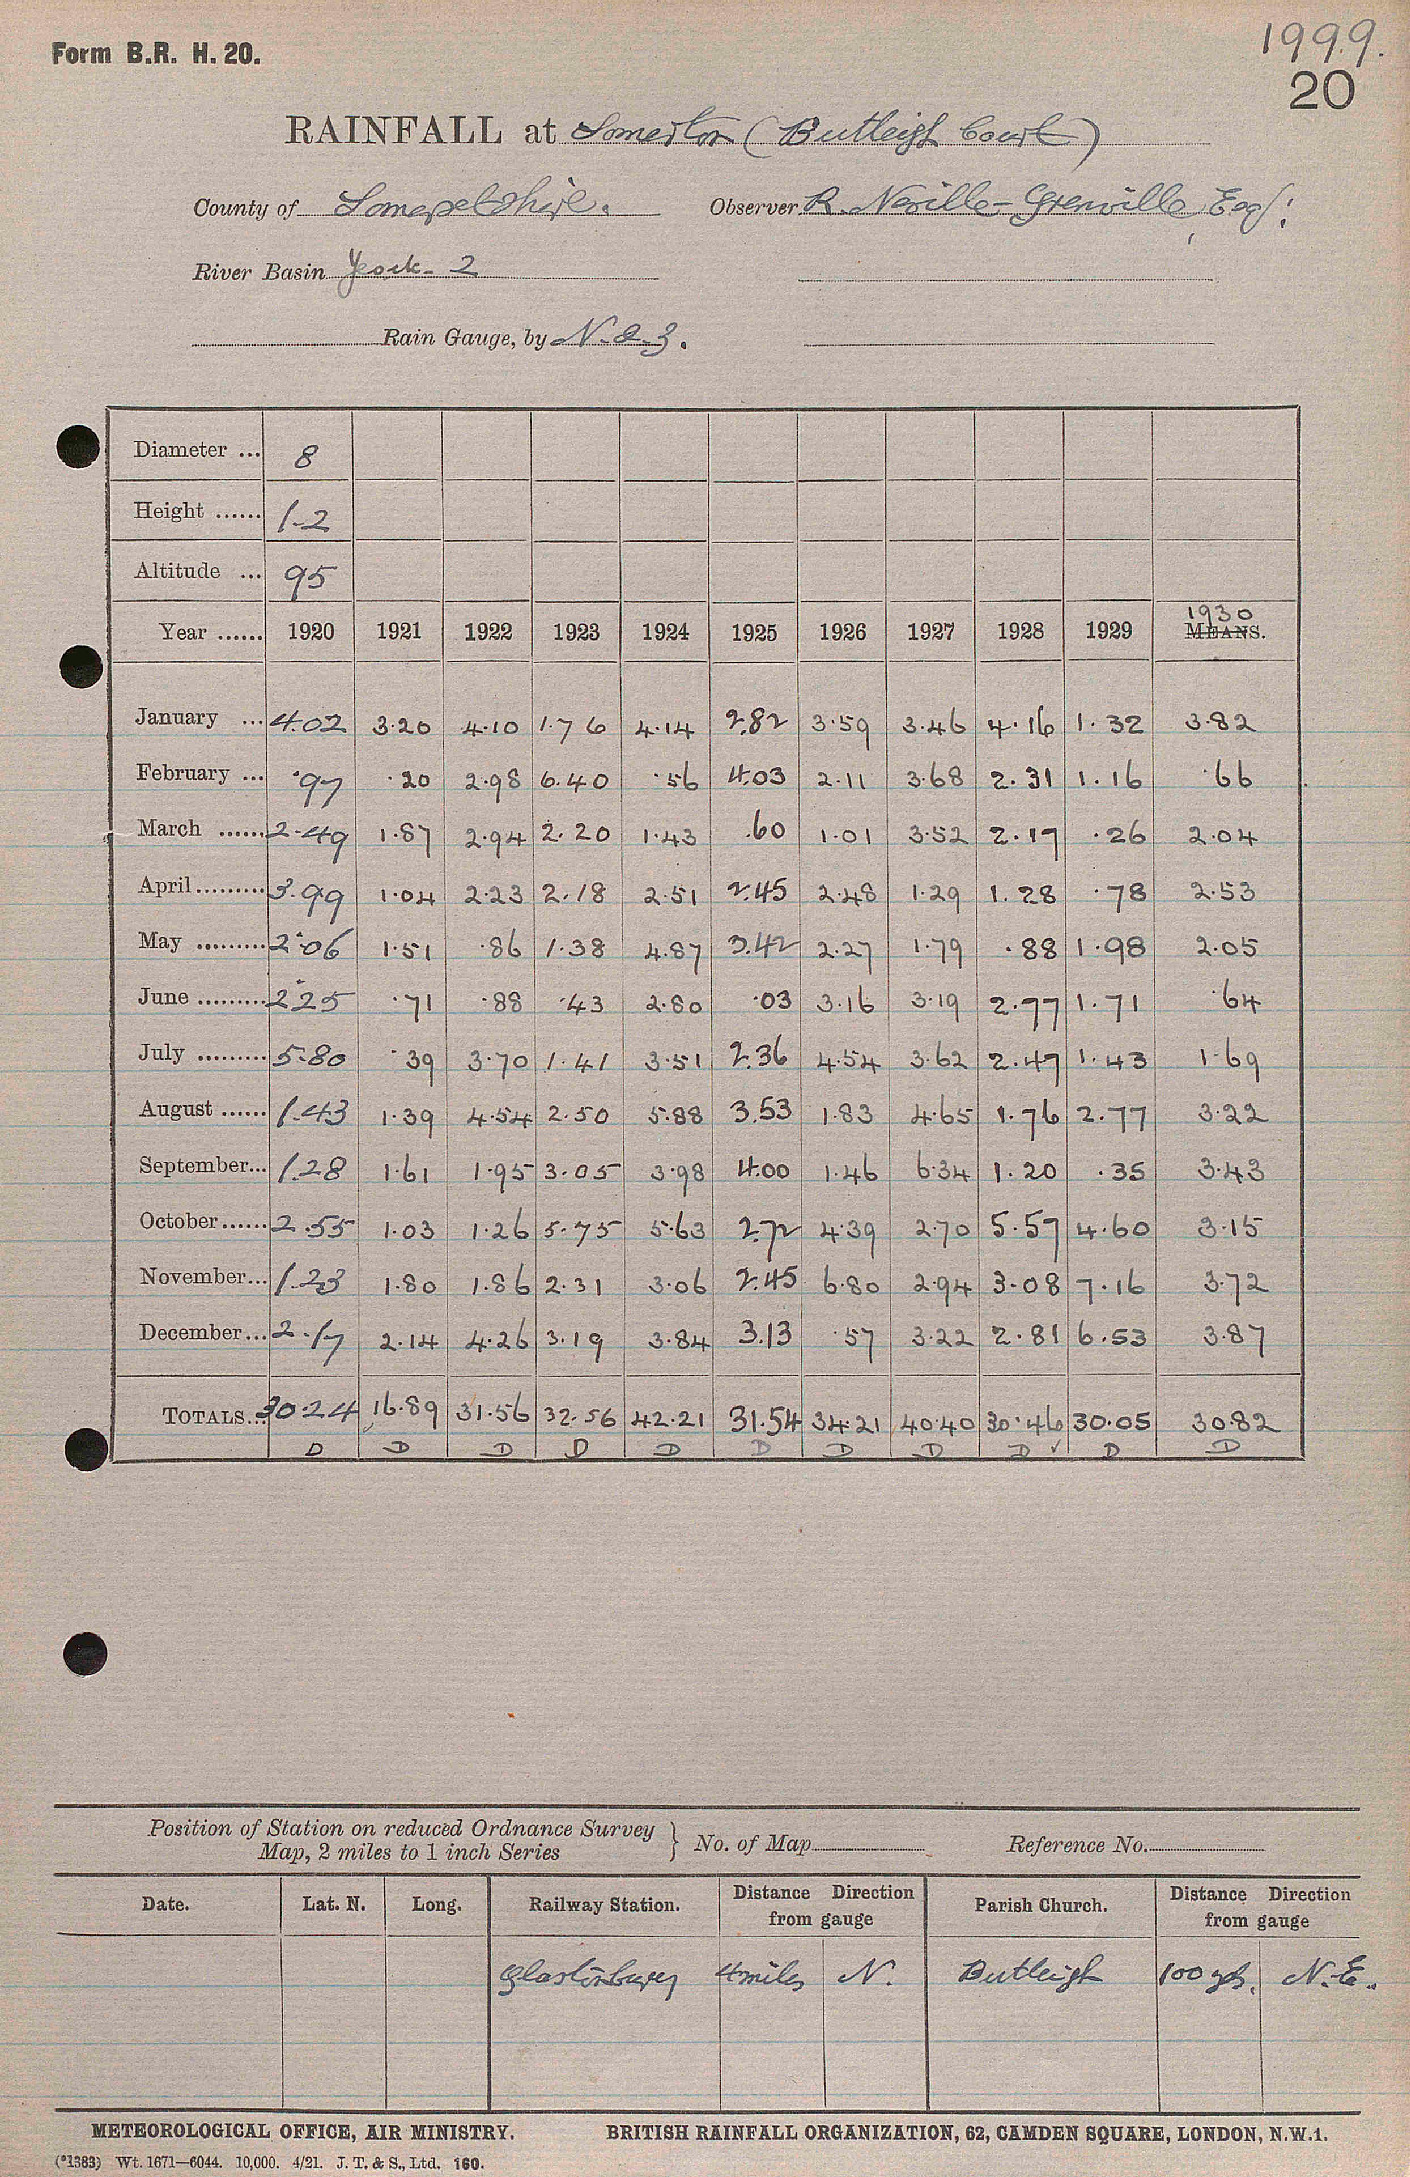 Form B.R. H. 20.
1999.
20
RAINFALL at Somerton (Butleigh Court)
County of Somersetshire. Observer R. Neville-Grenville, Esq:
River Basin 2
Rain Gauge, by N & Z.
Diameter ... 8
Height ...... 1-2
Altitude ... 95
Year ...... 1920 1921 1922 1923 1924 1925 1926 1927 1928 1929 1930 MEANS.
January ... 4.02 3.20 4.10 1.76 4.14 2.82 3.59 3.46 4.16 1.32 3.82
February ... .97 .20 2.98 6.40 .56 4.03 2.11 3.68 2.31 1.16 .66
March ...... 2.49 1.87 2.94 2.20 1.43 .60 1.01 3.52 2.17 .26 2.04
April......... 3.99 1.04 2.23 2.18 2.51 2.45 2.48 1.29 1.28 .78 2.53
May ......... 2.06 1.51 .86 1.38 4.87 3.42 2.27 1.79 .88 1.98 2.05
June ......... 2.25 .71 .88 .43 2.80 .03 3.16 3.19 2.77 1.71 .64
July ......... 5.80 .39 3.70 1.41 3.51 2.36 4.54 3.62 2.47 1.43 1.69
August ...... 1.43 1.39 4.54 2.50 5.88 3.53 1.83 4.65 1.76 2.77 3.22
September... 1.28 1.61 1.95 3.05 3.98 4.00 1.46 6.34 1.20 .35 3.43
October...... 2.55 1.03 1.26 5.75 5.63 2.72 4.39 2.70 5.57 4.60 3.15
November... 1.23 1.80 1.86 2.31 3.06 2.45 6.80 2.94 3.08 7.16 3.72
December... 2.17 2.14 4.26 3.19 3.84 3.13 .57 3.22 2.81 6.53 3.87
TOTALS... 30.24 16.89 31.56 32.56 42.21 31.54 34.21 40.40 30.46 30.05 30.82
D D D D D D D D D ✓ D D
Position of Station on reduced Ordnance Survey
Map, 2 miles to 1 inch Series } No. of Map Reference No.
Date. Lat. N. Long. Railway Station. Distance Direction from gauge Parish Church. Distance Direction from gauge
Glastonbury 4 miles N. Butleigh 100 yds. N.E.
METEOROLOGICAL OFFICE, AIR MINISTRY. BRITISH RAINFALL ORGANIZATION, 62, CAMDEN SQUARE, LONDON, N.W.1.
(*1383) Wt. 1671—6044. 10,000. 4/21. J. T. & S., Ltd. 160.